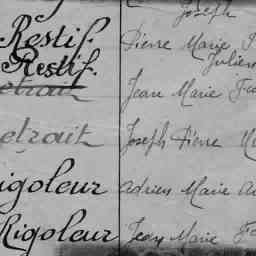 Joseph
Restif. Pierre Marie
Julien
Restif.
etrait Jean Marie
etrait Joseph Pierre
igoleur Adrien Marie
Rigoleur Jean Marie